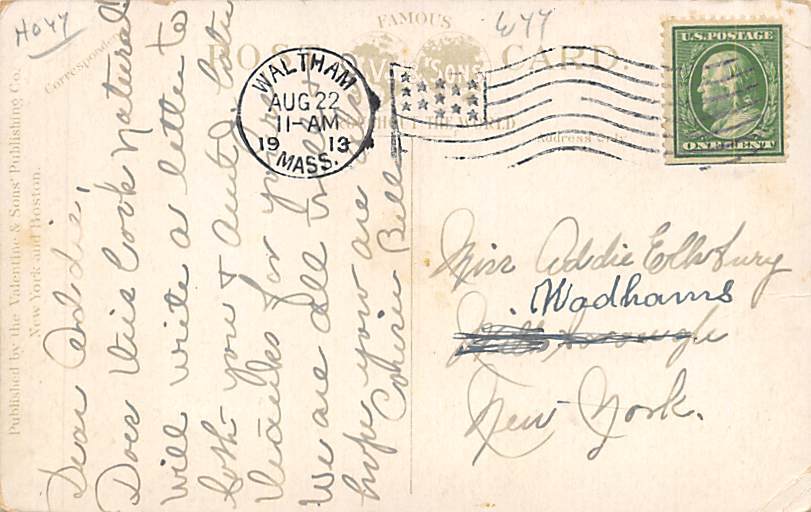 H044
E44
FAMOUS
POST CARD.
SONS'
THROUGHOUT THE WORLD
Correspondence
Address Only
Published by the Valentine & Sons' Publishing Co.
New York and Boston.
WALTHAM
AUG 22
11-AM
1913
MASS.
U.S. POSTAGE
ONE CENT
Dear Addie,
Does this look natural
will write a letter to
both you & Aunt
thanks for yours
We are all well &
hope you are
Cousin Bell
Miss Addie
Wadhams
Willsborough
New York.